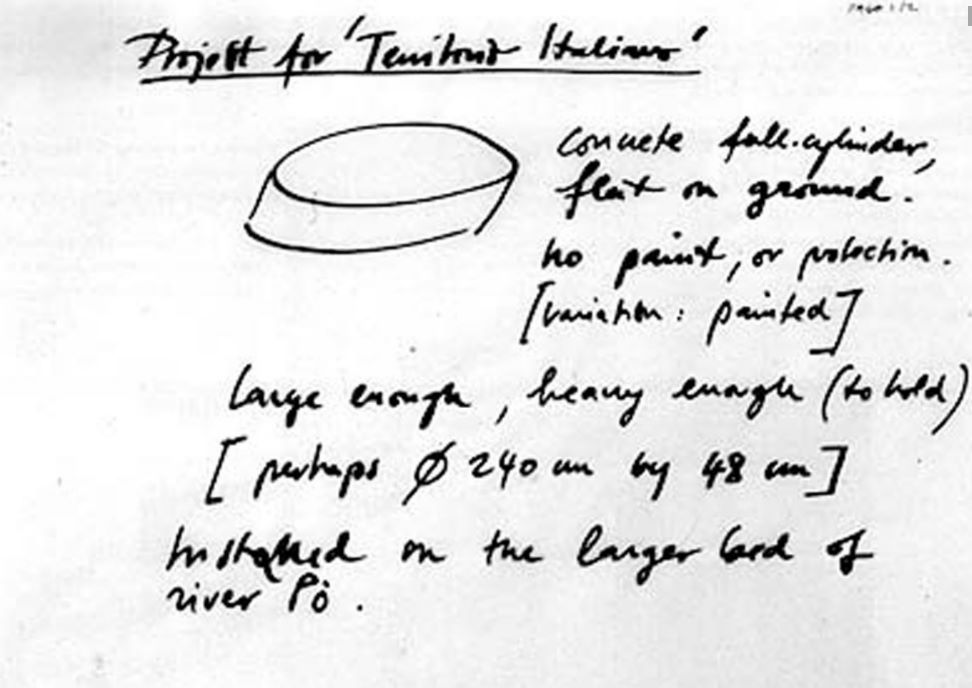 Projekt for 'Territorio Italiano'
concrete full-cylinder,
flat on ground.
no paint, or protection.
[variation: painted]
large enough, heavy enough (to hold)
[perhaps Ø 240 cm by 48 cm]
Installed on the larger bed of
river Pò.